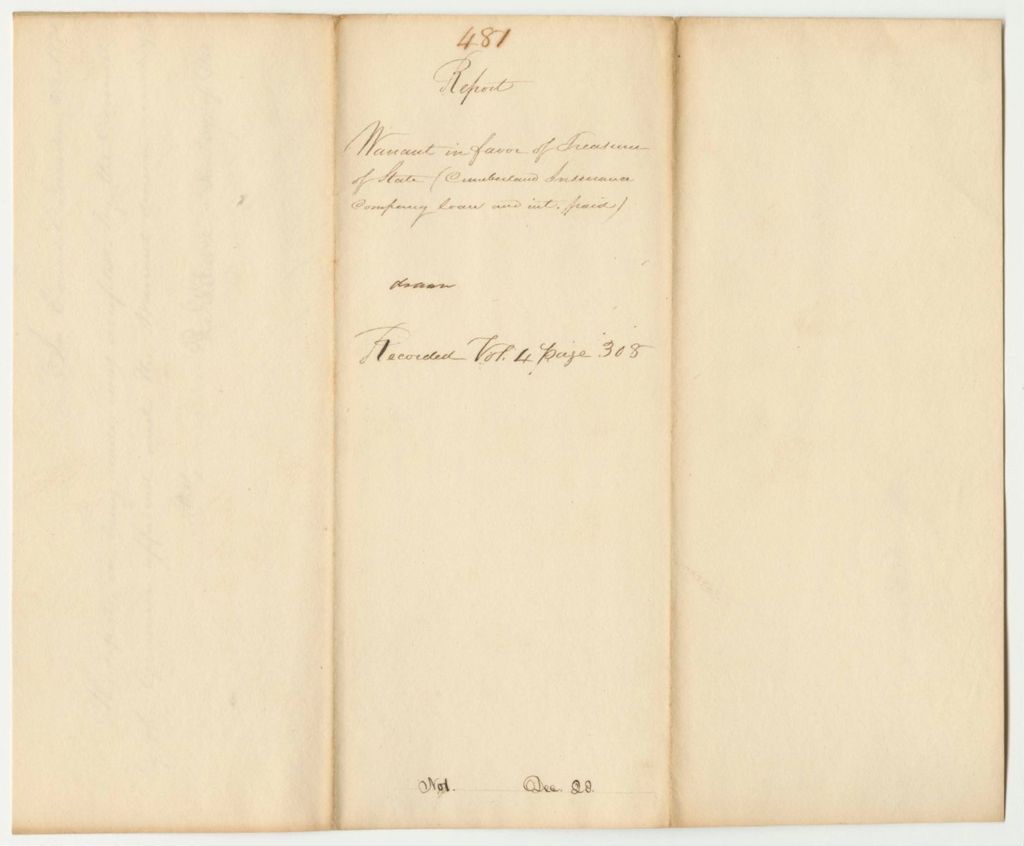 481
Report
Warrant in favor of Treasurer
of State (Cumberland Insurance
Company loan and int. paid)
drawn
Recorded Vol. 4 page 308
No1. Dec. 28.